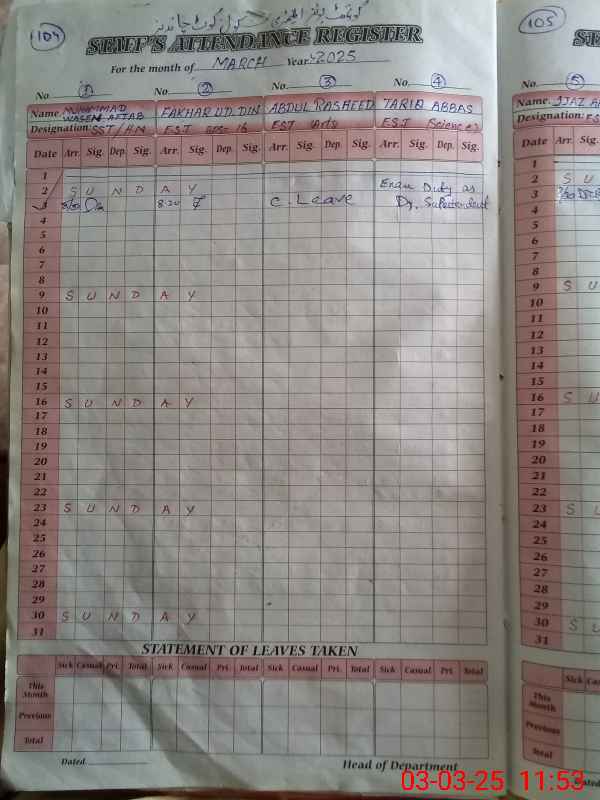 104
STAFF'S ATTENDANCE REGISTER
For the month of MARCH Year 2025
No. 1 No. 2 No. 3 No. 4
Name. MUHAMMAD WASEM AFTAB FAKHAR UD. DIN ABDUL RASHEED TARIQ ABBAS
Designation: SST/HN EST BPS-16 EST Arts EST (Science)
Date Arr. Sig. Dep. Sig. Arr. Sig. Dep. Sig. Arr. Sig. Dep. Sig. Arr. Sig. Dep. Sig.
1
2 S U N D A Y Exam Duty as
3 8:20 C. Leave Dy. Supertendent
4
5
6
7
8
9 S U N D A Y
10
11
12
13
14
15
16 S U N D A Y
17
18
19
20
21
22
23 S U N D A Y
24
25
26
27
28
29
30 S U N D A Y
31
STATEMENT OF LEAVES TAKEN
Sick Casual Pri. Total Sick Casual Pri. Total Sick Casual Pri. Total Sick Casual Pri. Total
This Month
Previous
Total
Dated Head of Department
105
No. 5
Name. IJAZ A
Designation: ES
Date Arr. Sig.
1
2 S U
3
4
5
6
7
8
9 S U
10
11
12
13
14
15
16 S U
17
18
19
20
21
22
23 S U
24
25
26
27
28
29
30 S U
31
Sick
This Month
Previous
Total
Dated
03-03-25 11:53